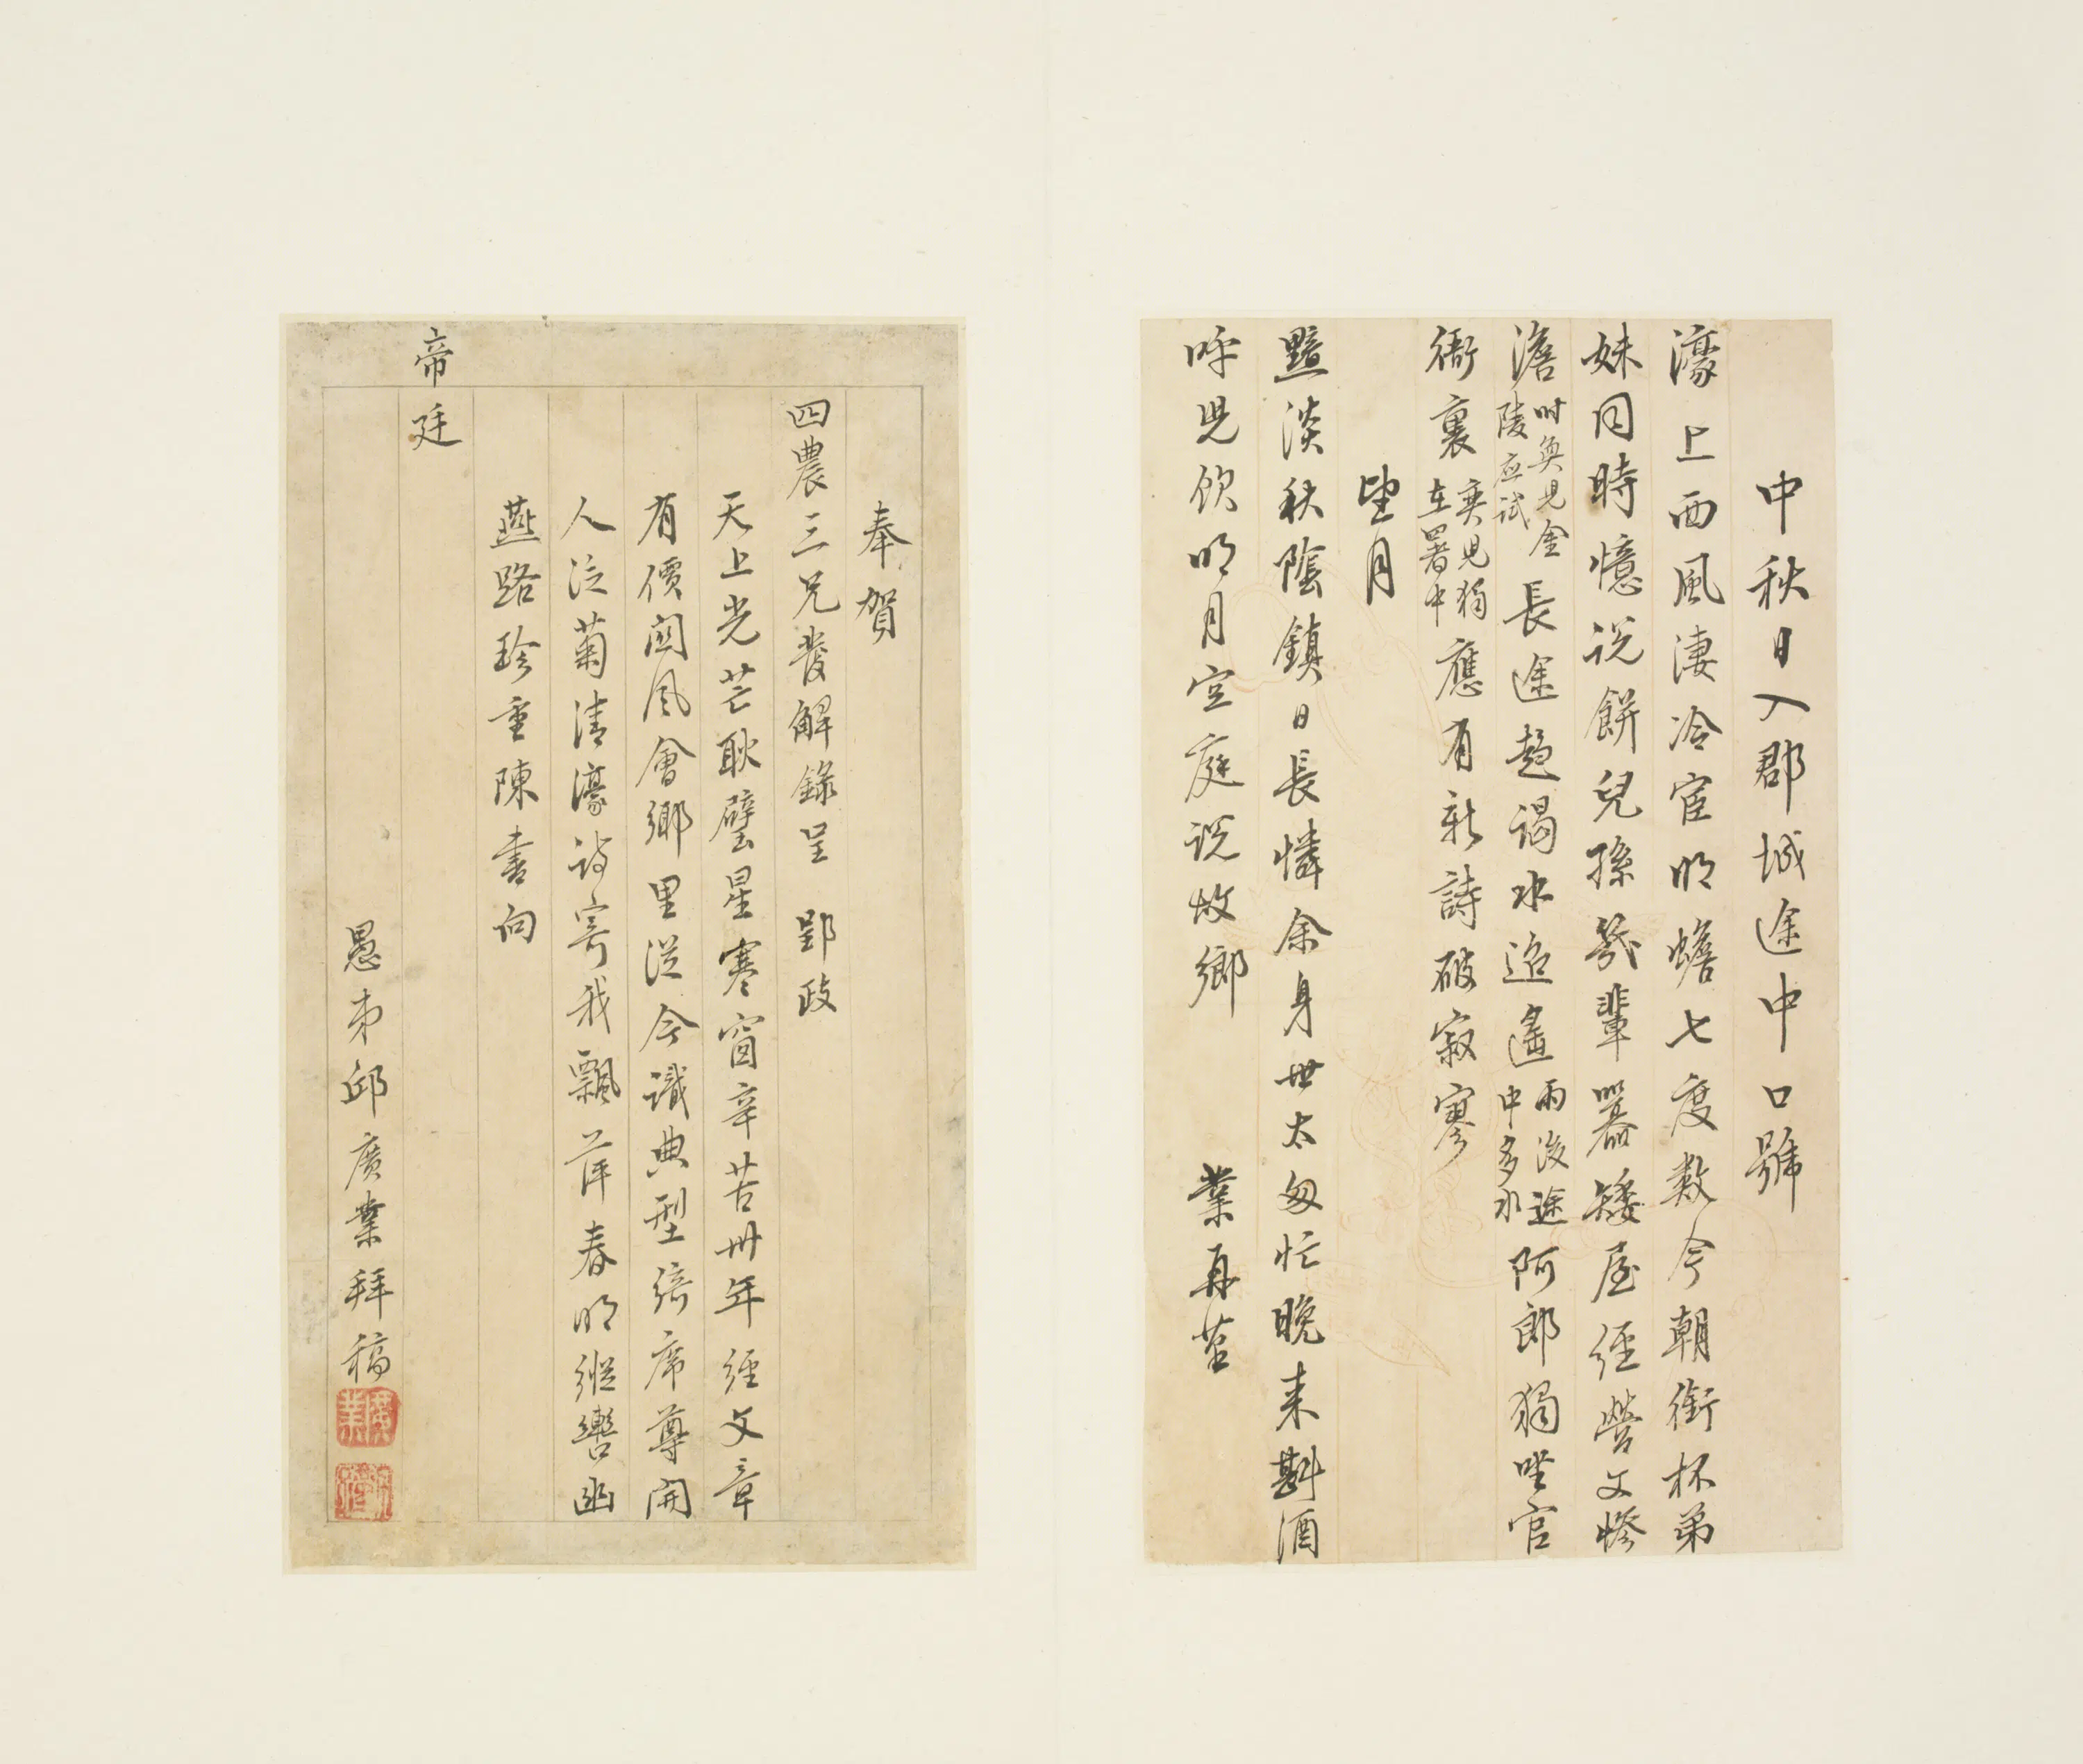 中秋日入郡城途中口號
濠上西風淒冷宦明蟾七度数今朝銜杯弟
妹同時憶说餅兒孫幾輩嚣矮屋经營文惨
澹时奐児金陵应試長途趋谒水迢遥雨後途中多水阿郎獨坐官
衙裏奕児獨在署中應有新詩破寂寥
望月
黯淡秋陰鎮日長憐余身世太匆忙晚来斟酒
呼児飲明月空庭说故鄉　業再草
奉賀
四農三兄發解錄呈　郢政
天上光芒耿璧星寒窗辛苦卅年經文章
有價関風會鄉里從今識典型绮席尊開
人泛菊清濠詩寄我飄萍春明縱轡函
燕路珍重陳書向
帝廷
愚弟邱廣業拜稿
廣業